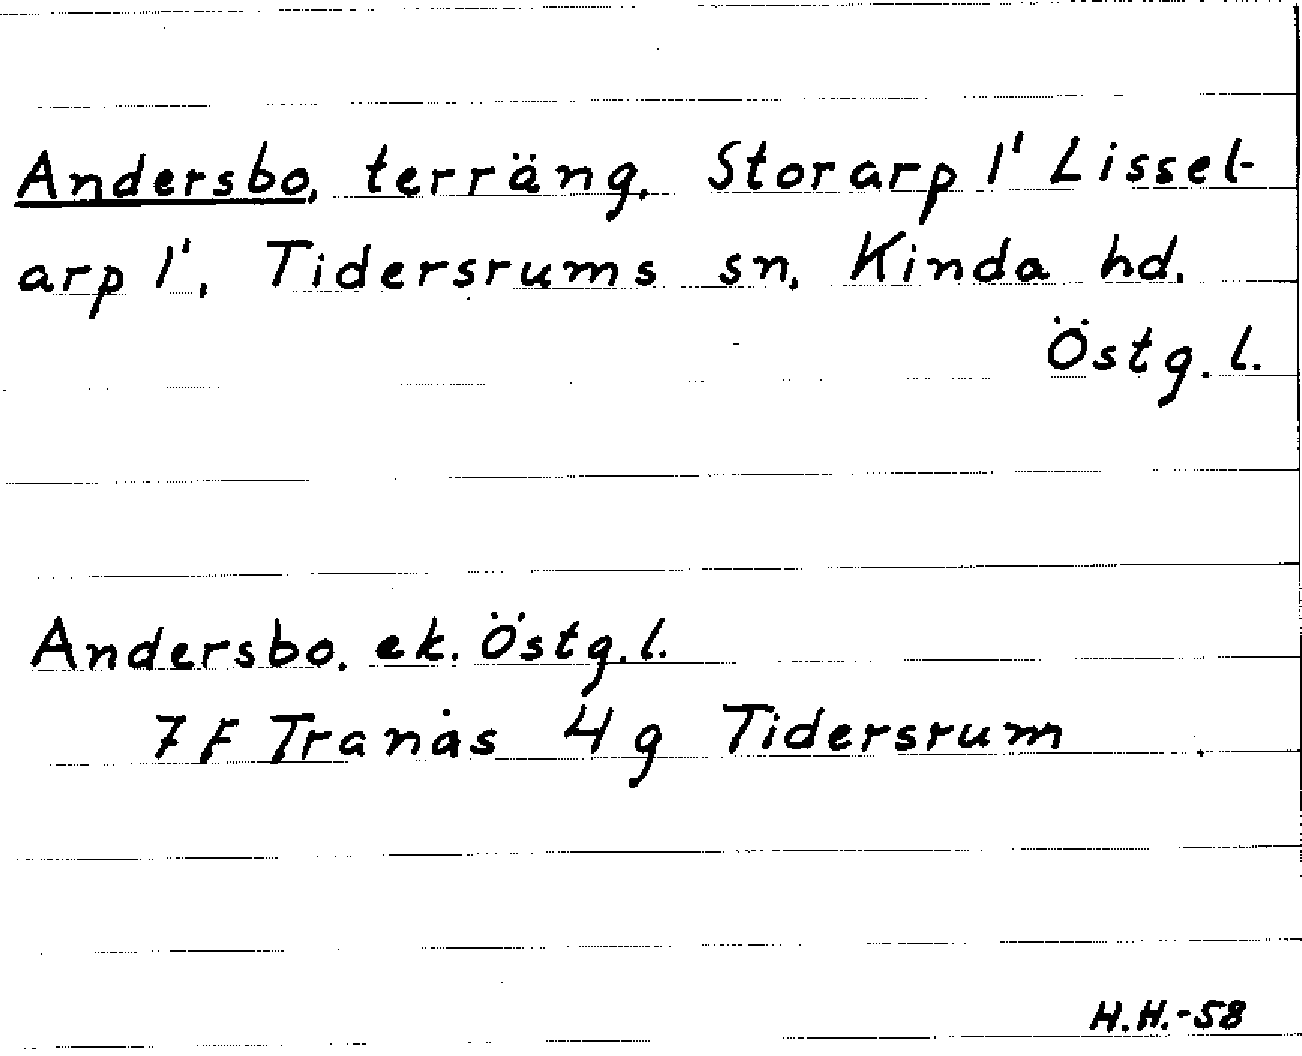 Andersbo, terräng. Storarp 1' Lissel-
arp 1', Tidersrums sn, Kinda hd.
Östg. l.
Andersbo. ek. Östg. l.
7 F Tranås 4 g Tidersrum
H.H.-58